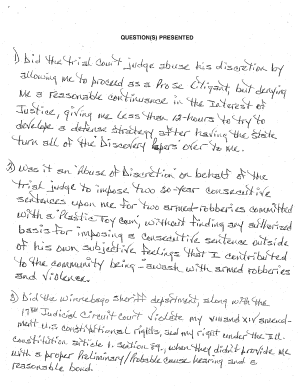 QUESTION(S) PRESENTED
1) Did the trial court judge abuse his discretion by
allowing me to proceed as a Pro se litigant, but denying
me a reasonable continuance in the Interest of
Justice, giving me less than 12-hours to try to
develope a defense strategy after having the State
turn all of the Discovery papers over to me.
2) Was it an Abuse of Discretion on behalf of the
trial judge to impose two 20-year consecutive
sentences upon me for two armed-robberies committed
with a "Plastic Toy Gun", without finding any authorized
basis for imposing a consecutive sentence outside
of his own subjective feelings that I contributed
to the community being awash with armed robberies
and violence.
3) Did the Winnebago sheriff department, along with the
17th Judicial Circuit court violate my VIII and XIV amend-
ment U.S constitutional rights, and my right under the Ill.
constitution article 1. section 9, when they didn't provide me
with a proper Preliminary/Probable cause hearing and a
reasonable bond.